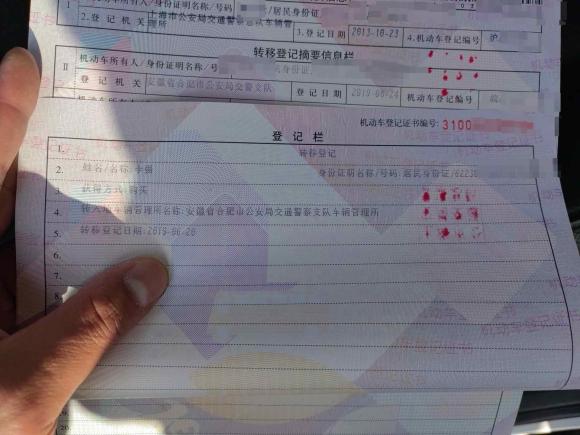 1.机动车所有人/身份证明名称/号码 /居民身份证
2.登记机关 上海市公安局交通警察总队车辆管理所 3.登记日期 2013-10-23 4.机动车登记编号 沪
转移登记摘要信息栏
II 机动车所有人/身份证明名称/号 民身份证
登记机关 安徽省合肥市公安局交警支队 登记日期 2019-06-24 机动车登记编号 皖
机动车登记证书编号: 3100
登记栏
1. 转移登记
2. 姓名/名称:李强 身份证明名称/号码:居民身份证/62230
3. 获得方式:购买
4. 转入地车辆管理所名称:安徽省合肥市公安局交通警察支队车辆管理所
5. 转移登记日期:2019-06-20
6.
7.
8.
机动车登记证书
20.